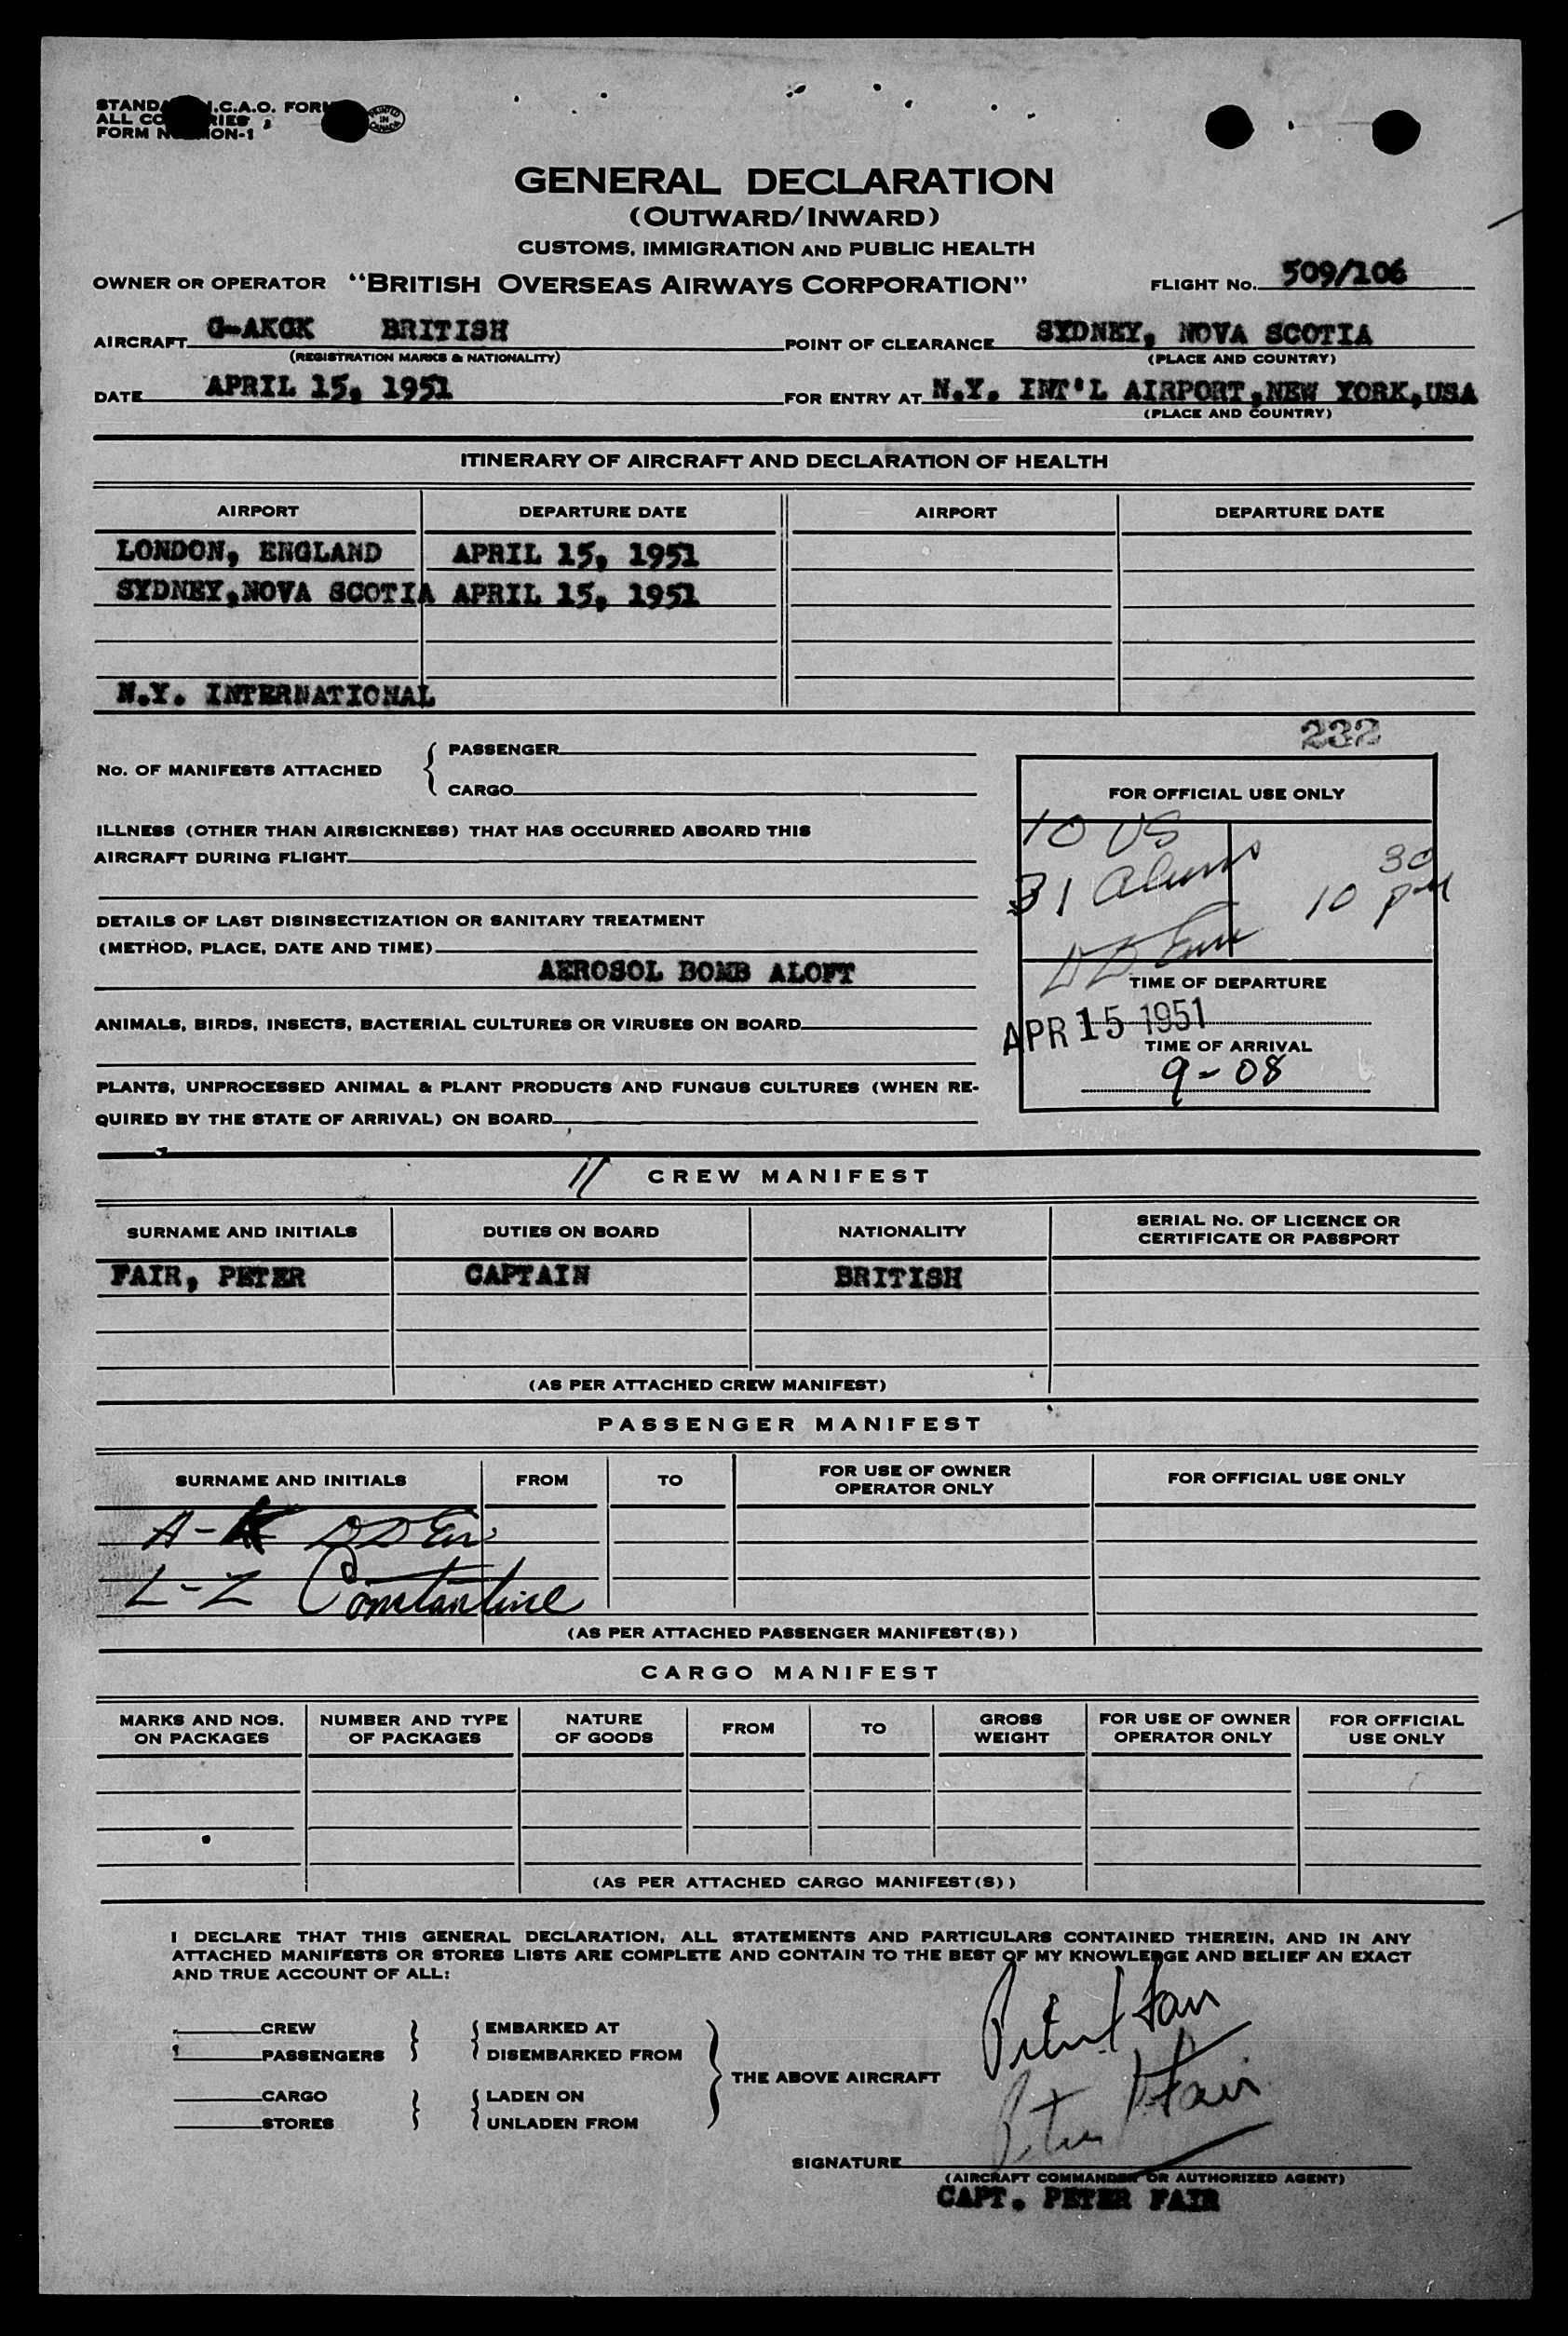 I.C.A.O. FORM
ALL
FORM
PRINTED IN CANADA
GENERAL DECLARATION
(OUTWARD/INWARD)
CUSTOMS, IMMIGRATION AND PUBLIC HEALTH
OWNER OR OPERATOR "BRITISH OVERSEAS AIRWAYS CORPORATION" FLIGHT NO. 509/106
AIRCRAFT G-AKGK BRITISH POINT OF CLEARANCE SYDNEY, NOVA SCOTIA
(REGISTRATION MARKS & NATIONALITY) (PLACE AND COUNTRY)
DATE APRIL 15, 1951 FOR ENTRY AT N.Y. INT'L AIRPORT,NEW YORK,USA
(PLACE AND COUNTRY)
ITINERARY OF AIRCRAFT AND DECLARATION OF HEALTH
AIRPORT DEPARTURE DATE AIRPORT DEPARTURE DATE
LONDON, ENGLAND APRIL 15, 1951
SYDNEY,NOVA SCOTIA APRIL 15, 1951
N.Y. INTERNATIONAL
232
No. OF MANIFESTS ATTACHED { PASSENGER
CARGO
FOR OFFICIAL USE ONLY
10 US
31 Aliens
10 30 PM
ILLNESS (OTHER THAN AIRSICKNESS) THAT HAS OCCURRED ABOARD THIS
AIRCRAFT DURING FLIGHT
DETAILS OF LAST DISINSECTIZATION OR SANITARY TREATMENT
(METHOD, PLACE, DATE AND TIME)
AEROSOL BOMB ALOFT
TIME OF DEPARTURE
APR 15 1951
TIME OF ARRIVAL
9-08
ANIMALS, BIRDS, INSECTS, BACTERIAL CULTURES OR VIRUSES ON BOARD
PLANTS, UNPROCESSED ANIMAL & PLANT PRODUCTS AND FUNGUS CULTURES (WHEN RE-
QUIRED BY THE STATE OF ARRIVAL) ON BOARD
11 CREW MANIFEST
SURNAME AND INITIALS DUTIES ON BOARD NATIONALITY SERIAL No. OF LICENCE OR
CERTIFICATE OR PASSPORT
FAIR, PETER CAPTAIN BRITISH
(AS PER ATTACHED CREW MANIFEST)
PASSENGER MANIFEST
SURNAME AND INITIALS FROM TO FOR USE OF OWNER
OPERATOR ONLY FOR OFFICIAL USE ONLY
A-K
L-Z Constantine
(AS PER ATTACHED PASSENGER MANIFEST(S))
CARGO MANIFEST
MARKS AND NOS.
ON PACKAGES NUMBER AND TYPE
OF PACKAGES NATURE
OF GOODS FROM TO GROSS
WEIGHT FOR USE OF OWNER
OPERATOR ONLY FOR OFFICIAL
USE ONLY
(AS PER ATTACHED CARGO MANIFEST(S))
I DECLARE THAT THIS GENERAL DECLARATION, ALL STATEMENTS AND PARTICULARS CONTAINED THEREIN, AND IN ANY
ATTACHED MANIFESTS OR STORES LISTS ARE COMPLETE AND CONTAIN TO THE BEST OF MY KNOWLEDGE AND BELIEF AN EXACT
AND TRUE ACCOUNT OF ALL:
CREW } { EMBARKED AT
PASSENGERS DISEMBARKED FROM
THE ABOVE AIRCRAFT
CARGO } { LADEN ON
STORES UNLADEN FROM
Peter Fair
Peter Fair
SIGNATURE
(AIRCRAFT COMMANDER OR AUTHORIZED AGENT)
CAPT. PETER FAIR